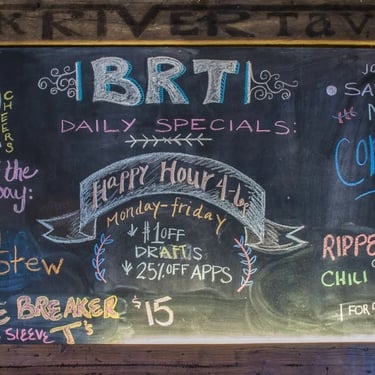 K RIVER TAV
BRT
DAILY SPECIALS:
CHEERS
the
Day:
Stew
Happy Hour 4-6
Monday-friday
↓ $1 OFF
DRAFTS
↓ 25% OFF APPS
E BREAKER $15
SLEEVE T's
JO
SA
Co
RIPPE
CHILI
FOR